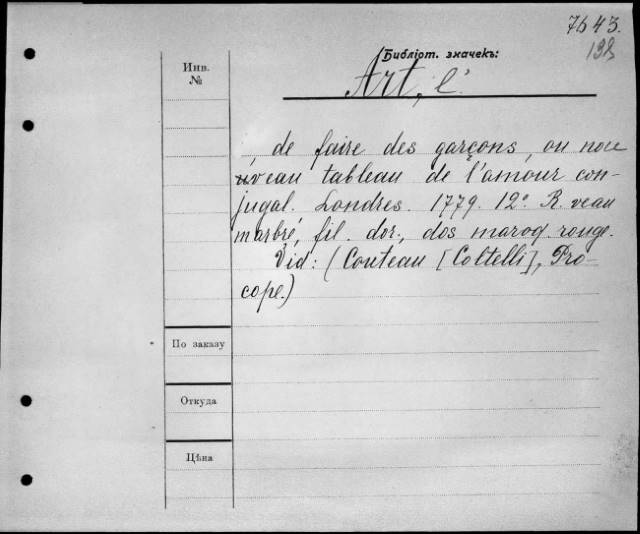 7643.
198
Библіот. значекъ:
Art, l'
Инв.
№
, de faire des garçons, ou nou
veau tableau de l'amour con-
jugal. Londres. 1779. 12º. R. veau
marbré, fil. d'or., dos maroq. rouge.
Vid: (Couteau [Coltelli], Pro-
cope.)
По заказу
Откуда
Цѣна